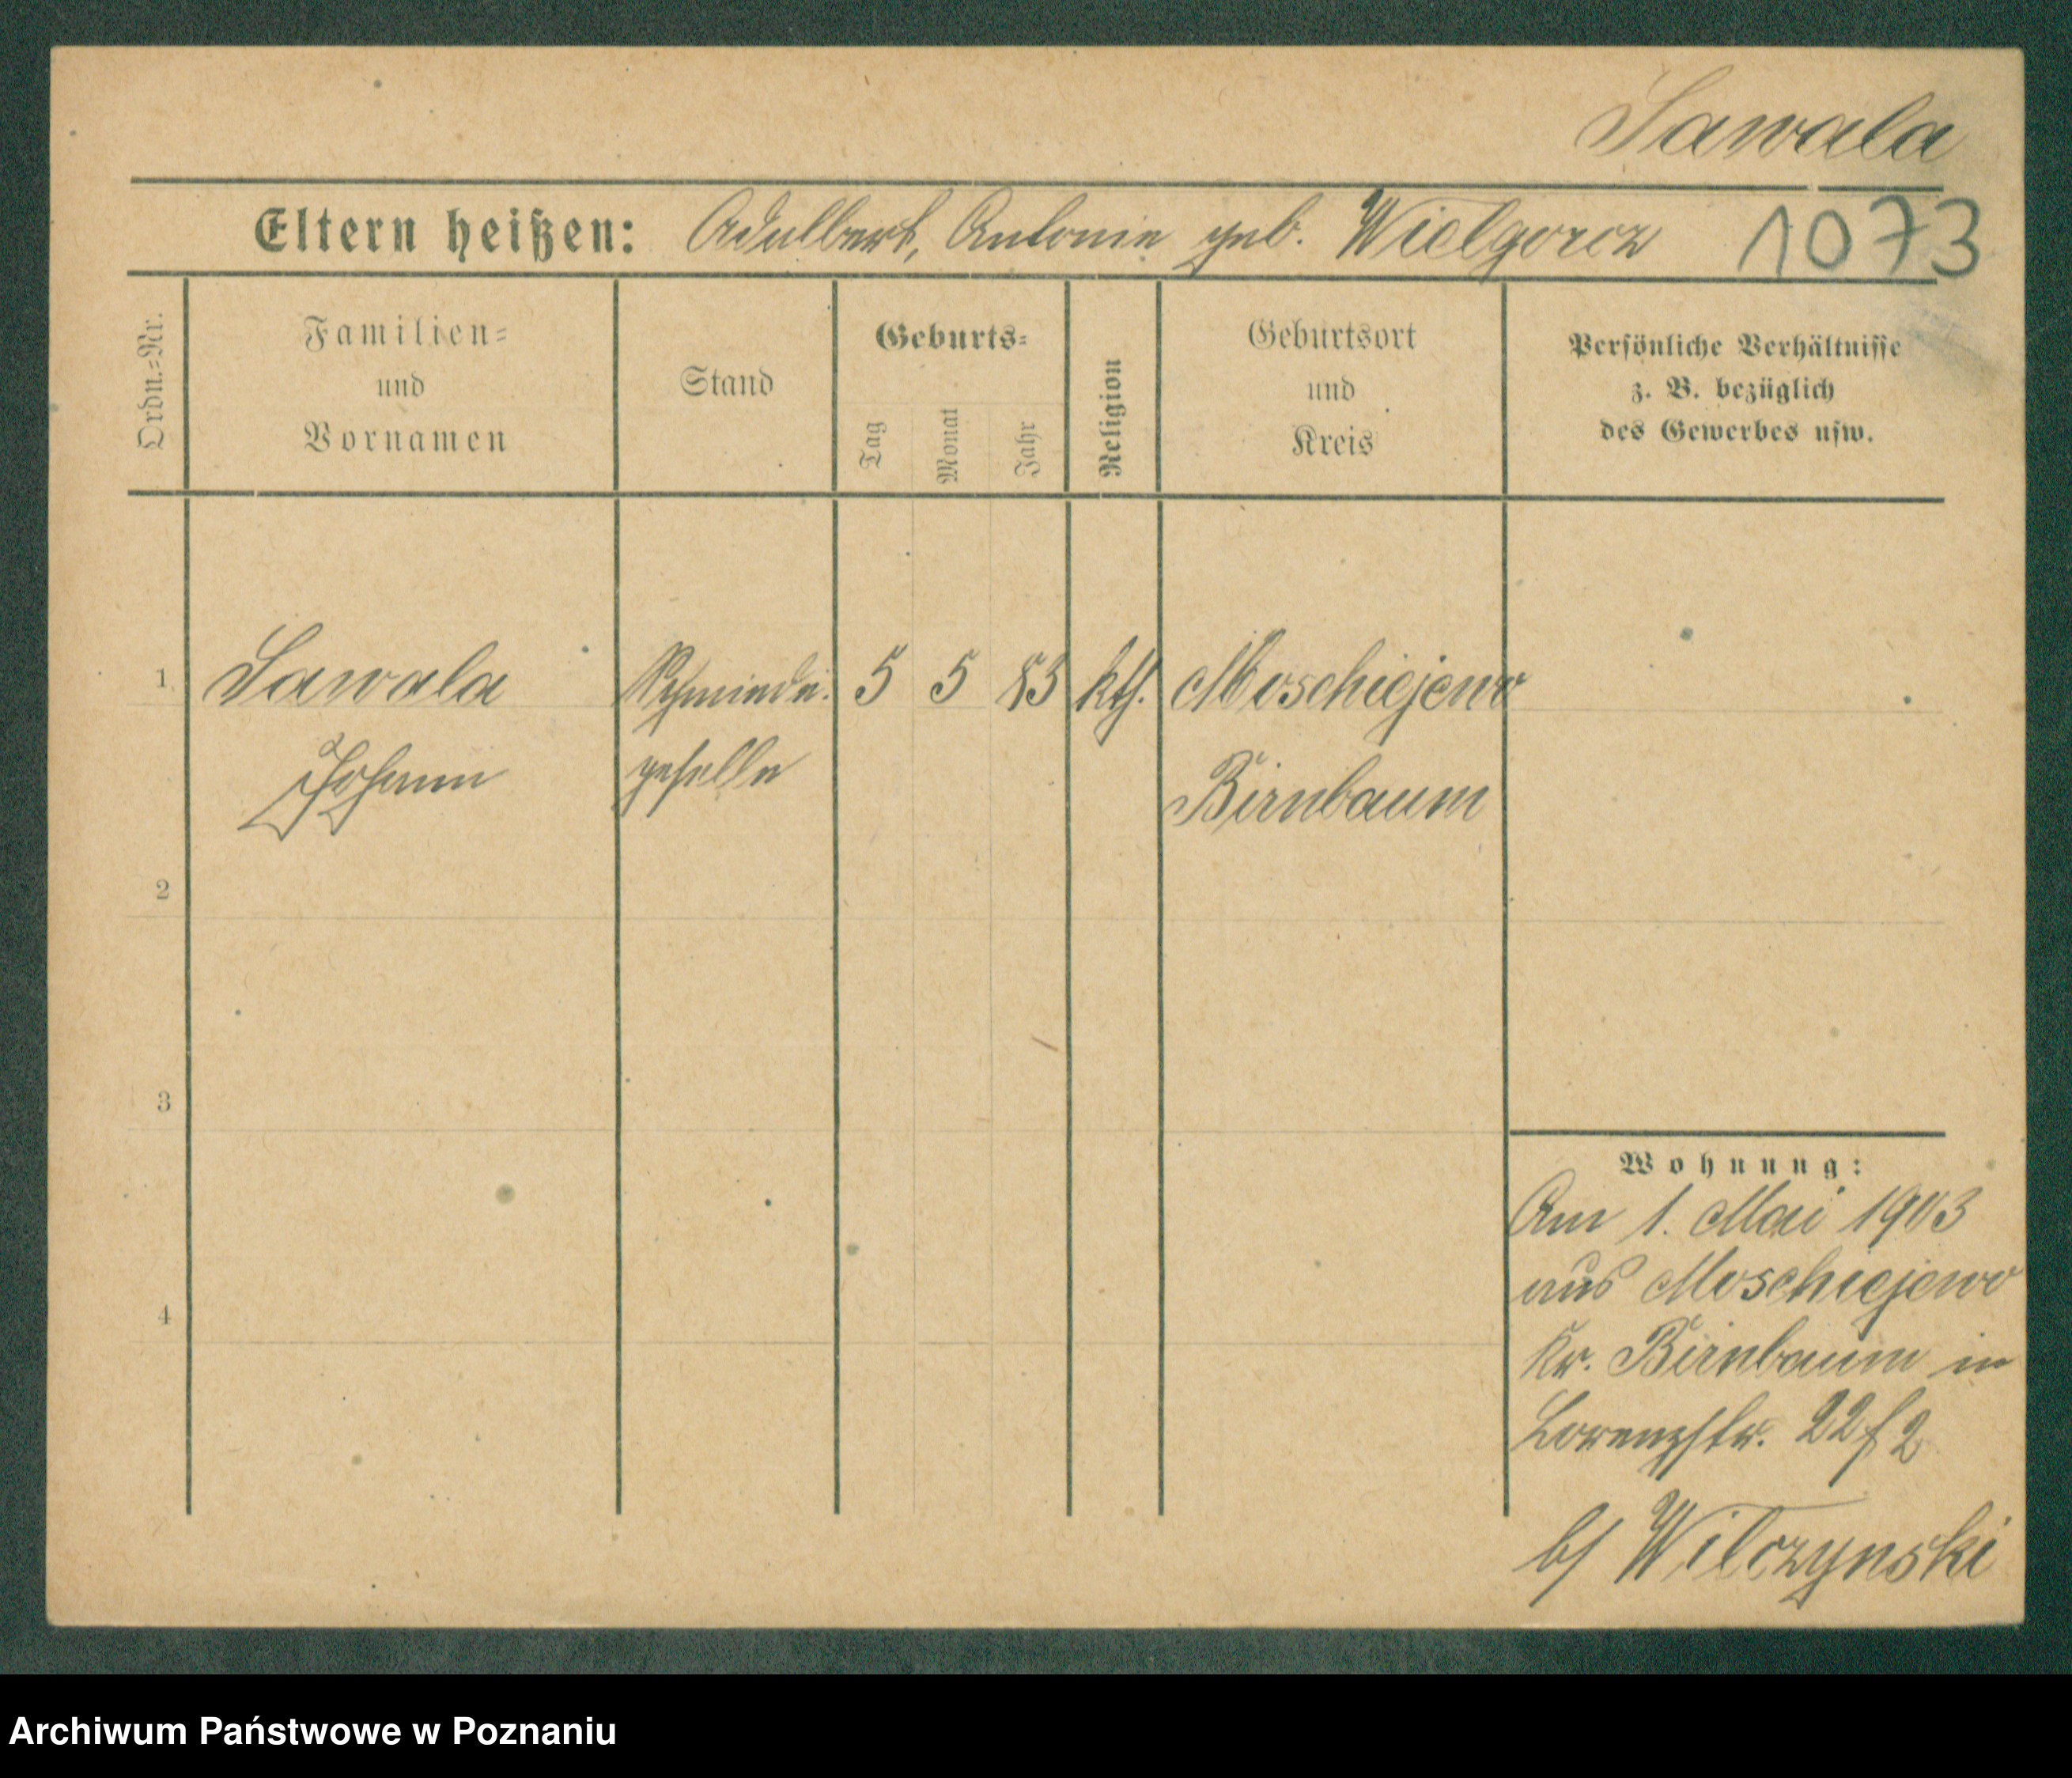 Sawala
Eltern heißen: Adalbert, Antonie geb. Wielgorcz 1073
Ordn.=Nr.
Familien=
und
Vornamen
Stand
Geburts=
Tag
Monat
Jahr
Religion
Geburtsort
und
Kreis
Persönliche Verhältnisse
z. B. bezüglich
des Gewerbes usw.
1 Sawala Schmiede- 5 5 83 kth. Moschiejewo
Johann geselle Birnbaum
2
3
4
Wohnung:
Am 1. Mai 1903
aus Moschiejewo
Kr. Birnbaum in
Lorenzstr. 22
b/ Wilczynski
Archiwum Państwowe w Poznaniu